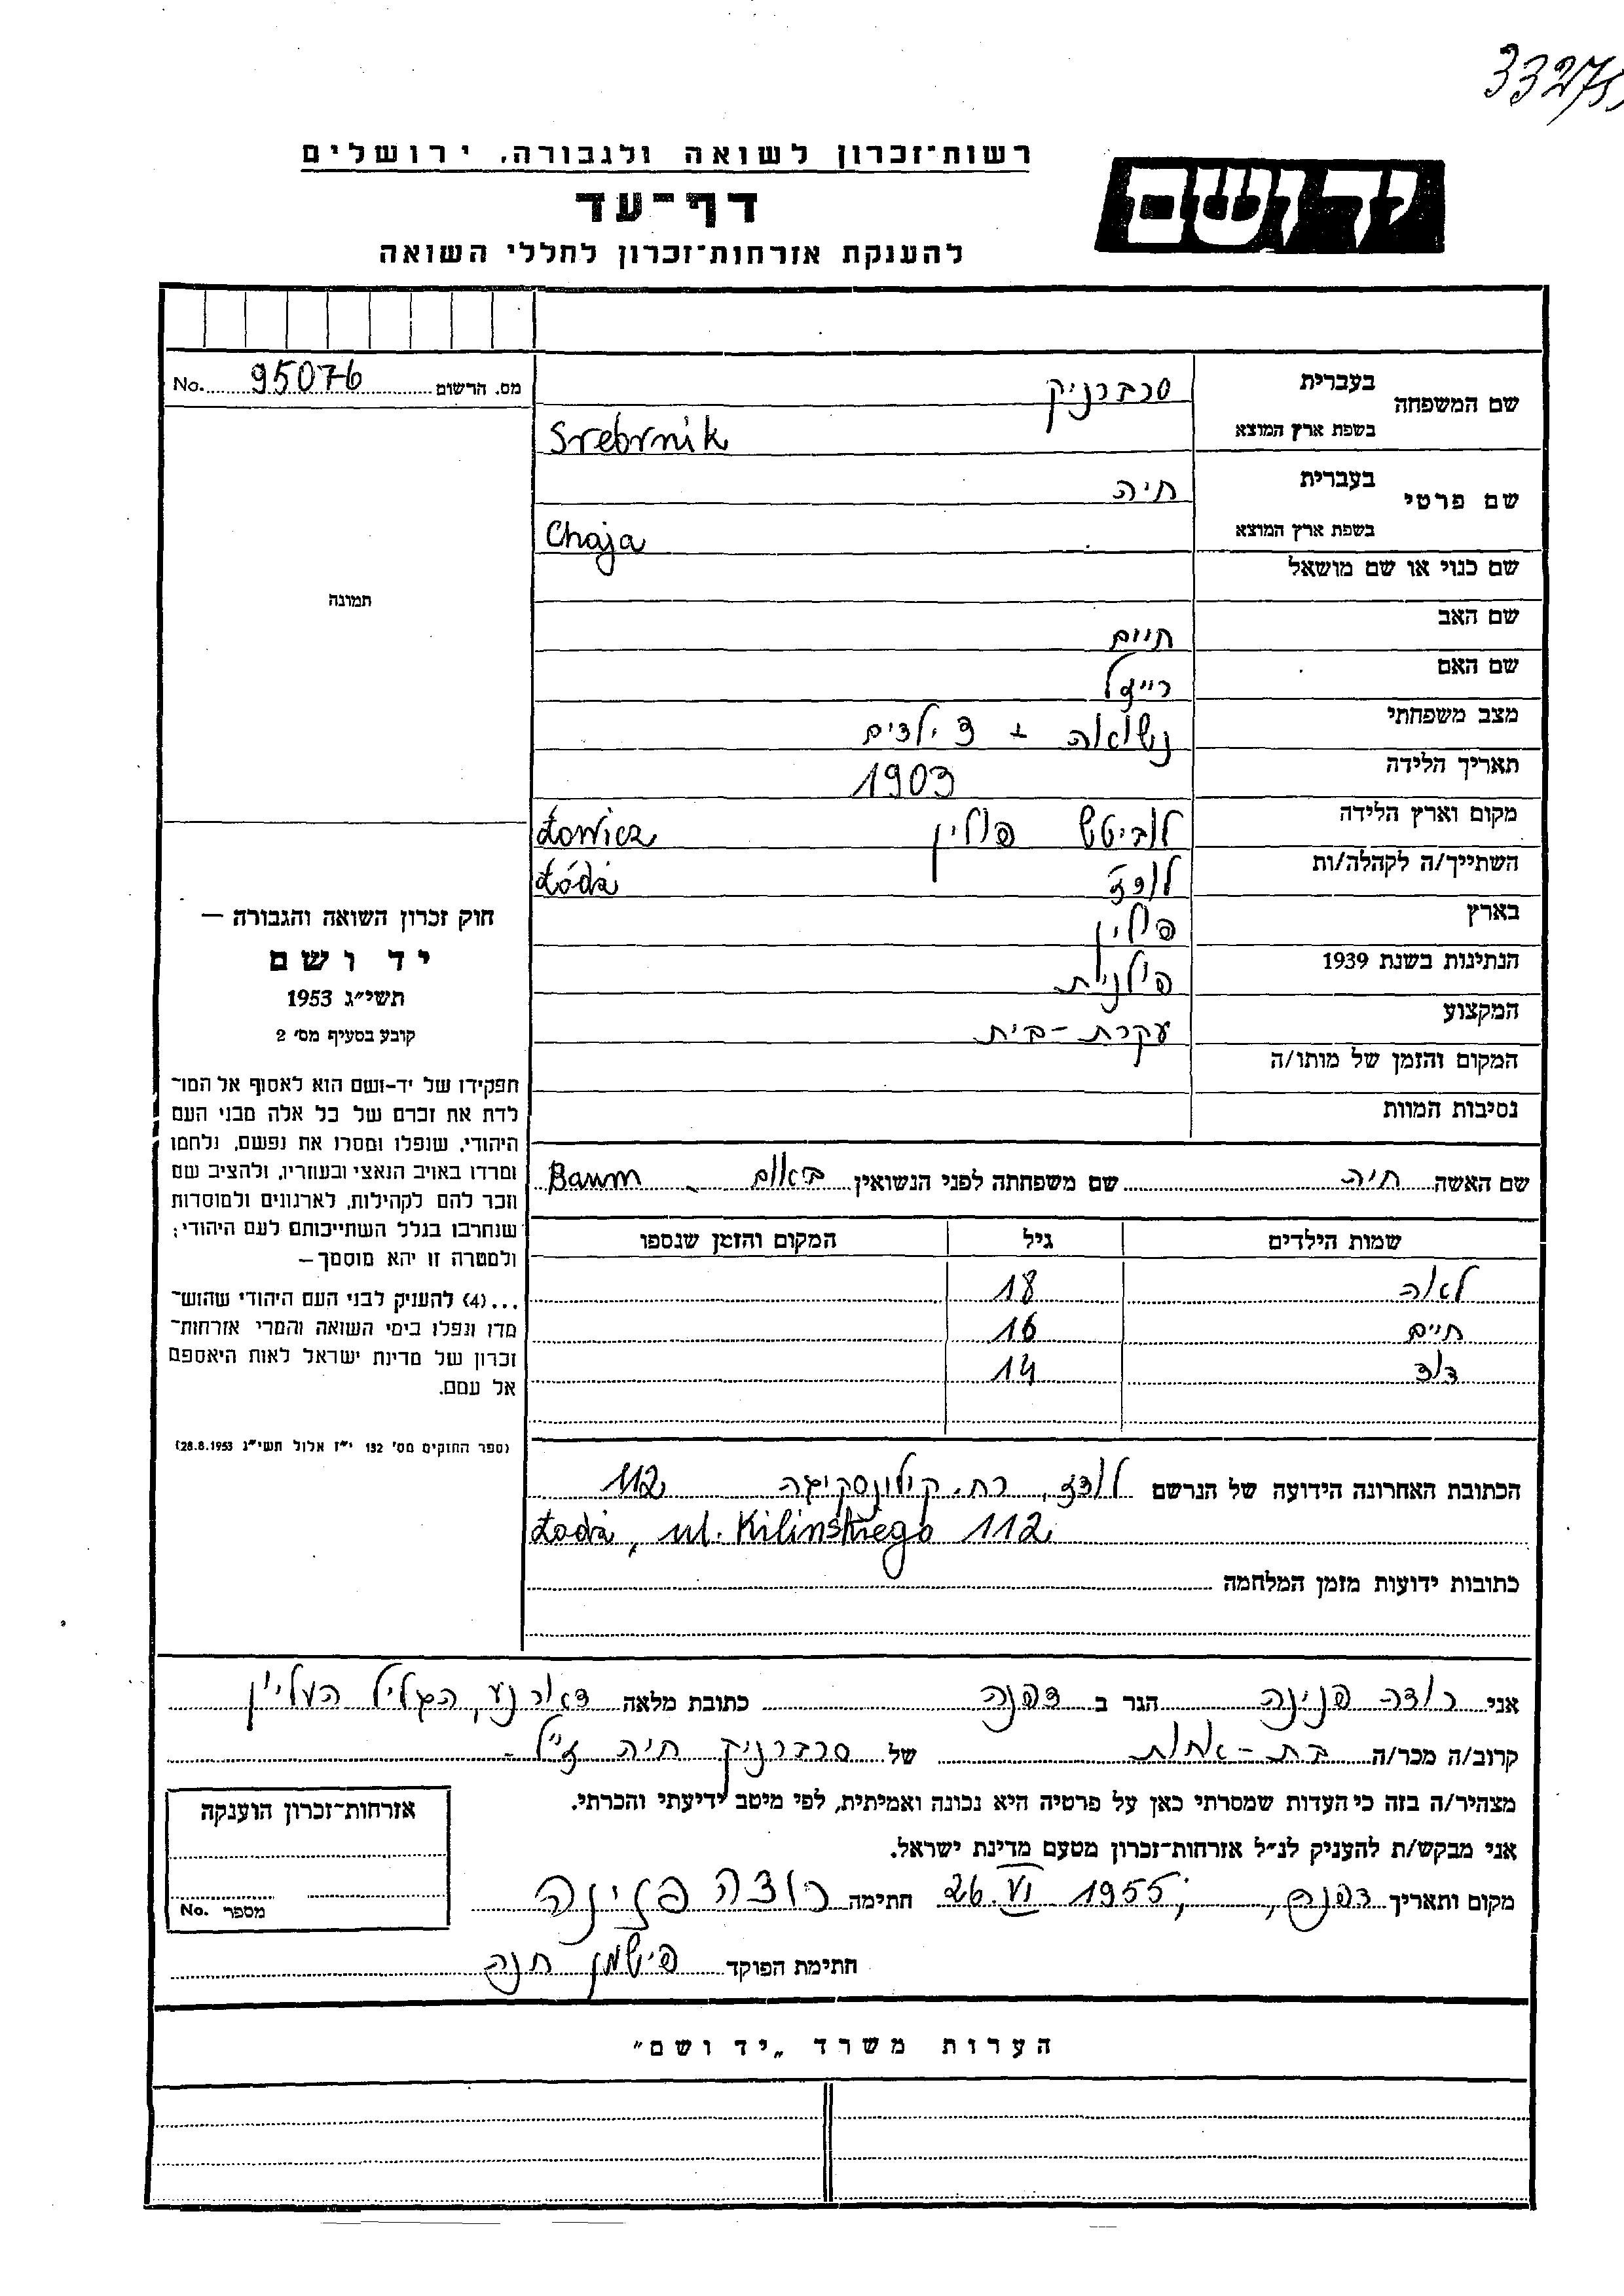 33275
רשות־זכרון לשואה ולגבורה, ירושלים
יד ושם
דף־עד
להענקת אזרחות־זכרון לחללי השואה
מס. הרשום 95076 No.
שם המשפחה בעברית סרברניק
בשפת ארץ המוצא Srebrnik
שם פרטי בעברית חיה
בשפת ארץ המוצא Chaja
שם כנוי או שם מושאל
שם האב חיים
שם האם רייזל
מצב משפחתי נשואה + 3 ילדים
תאריך הלידה 1903
מקום וארץ הלידה לוביטש פולין Łowicz
השתייך/ה לקהלה/ות לודז Łódź
בארץ פולין
הנתינות בשנת 1939 פולנית
המקצוע עקרת-בית
המקום והזמן של מותו/ה
נסיבות המוות
תמונה
חוק זכרון השואה והגבורה —
יד ושם
תשי״ג 1953
קובע בסעיף מס׳ 2
תפקידו של יד-ושם הוא לאסוף אל המו־
לדת את זכרם של כל אלה מבני העם
היהודי, שנפלו ומסרו את נפשם, נלחמו
ומרדו באויב הנאצי ובעוזריו, ולהציב שם
וזכר להם לקהילות, לארגונים ולמוסדות
שנחרבו בגלל השתייכותם לעם היהודי;
ולמטרה זו יהא מוסמך—
...(4) להעניק לבני העם היהודי שהוש־
מדו ונפלו בימי השואה והמרי אזרחות־
זכרון של מדינת ישראל לאות היאספם
אל עמם.
(ספר החוקים מס׳ 132 י״ז אלול תשי״ג 28.8.1953)
שם האשה חיה שם משפחתה לפני הנשואין באום Baum
שמות הילדים גיל המקום והזמן שנספו
לאה 18
חיים 16
דוד 14
הכתובת האחרונה הידועה של הנרשם לודז, רח. קילינסקיגה 112
Łodź, ul. Kilińskiego 112
כתובות ידועות מזמן המלחמה
אני רוזה פנינה הגר ב דפנה כתובת מלאה דאר נע, הגליל העליון
קרוב/ה מכר/ה בת-אחות של סרברניק חיה ז״ל
מצהיר/ה בזה כי העדות שמסרתי כאן על פרטיה היא נכונה ואמיתית, לפי מיטב ידיעתי והכרתי.
אני מבקש/ת להעניק לנ״ל אזרחות־זכרון מטעם מדינת ישראל.
מקום ותאריך דפנה, 26.VI 1955 חתימה רוזה פנינה
חתימת הפוקד פישמן חנה
אזרחות־זכרון הוענקה
מספר No.
הערות משרד „יד ושם"